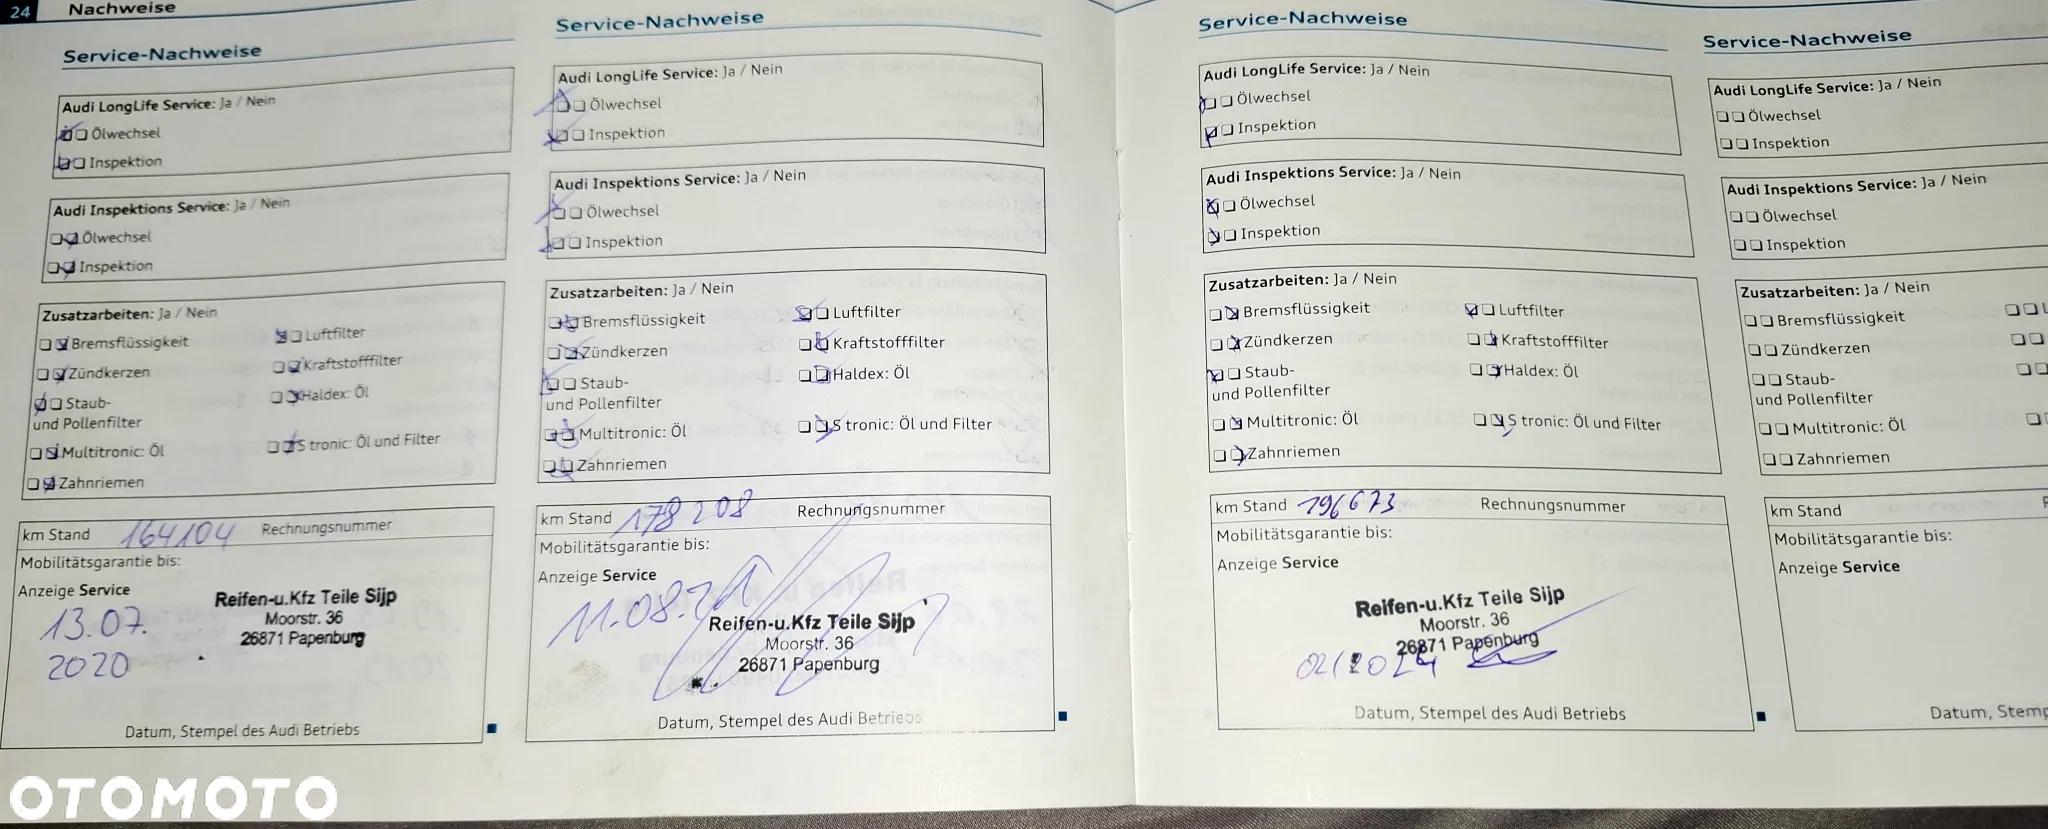 24 Nachweise
Service-Nachweise
Audi LongLife Service: Ja / Nein
Ölwechsel
Inspektion
Audi Inspektions Service: Ja / Nein
Ölwechsel
Inspektion
Zusatzarbeiten: Ja / Nein
Bremsflüssigkeit
Luftfilter
Zündkerzen
Kraftstofffilter
Staub-
und Pollenfilter
Haldex: Öl
Multitronic: Öl
S tronic: Öl und Filter
Zahnriemen
km Stand 164104 Rechnungsnummer
Mobilitätsgarantie bis:
Anzeige Service
13.07.
2020
Reifen-u.Kfz Teile Sijp
Moorstr. 36
26871 Papenburg
Datum, Stempel des Audi Betriebs
Service-Nachweise
Audi LongLife Service: Ja / Nein
Ölwechsel
Inspektion
Audi Inspektions Service: Ja / Nein
Ölwechsel
Inspektion
Zusatzarbeiten: Ja / Nein
Bremsflüssigkeit
Luftfilter
Zündkerzen
Kraftstofffilter
Staub-
und Pollenfilter
Haldex: Öl
Multitronic: Öl
S tronic: Öl und Filter
Zahnriemen
km Stand 178208 Rechnungsnummer
Mobilitätsgarantie bis:
Anzeige Service
11.08.21
Reifen-u.Kfz Teile Sijp
Moorstr. 36
26871 Papenburg
Datum, Stempel des Audi Betriebs
Service-Nachweise
Audi LongLife Service: Ja / Nein
Ölwechsel
Inspektion
Audi Inspektions Service: Ja / Nein
Ölwechsel
Inspektion
Zusatzarbeiten: Ja / Nein
Bremsflüssigkeit
Luftfilter
Zündkerzen
Kraftstofffilter
Staub-
und Pollenfilter
Haldex: Öl
Multitronic: Öl
S tronic: Öl und Filter
Zahnriemen
km Stand 196673 Rechnungsnummer
Mobilitätsgarantie bis:
Anzeige Service
Reifen-u.Kfz Teile Sijp
Moorstr. 36
26871 Papenburg
02/2024
Datum, Stempel des Audi Betriebs
Service-Nachweise
Audi LongLife Service: Ja / Nein
Ölwechsel
Inspektion
Audi Inspektions Service: Ja / Nein
Ölwechsel
Inspektion
Zusatzarbeiten: Ja / Nein
Bremsflüssigkeit
Zündkerzen
Staub-
und Pollenfilter
Multitronic: Öl
Zahnriemen
km Stand
Mobilitätsgarantie bis:
Anzeige Service
Datum, Stemp
OTOMOTO